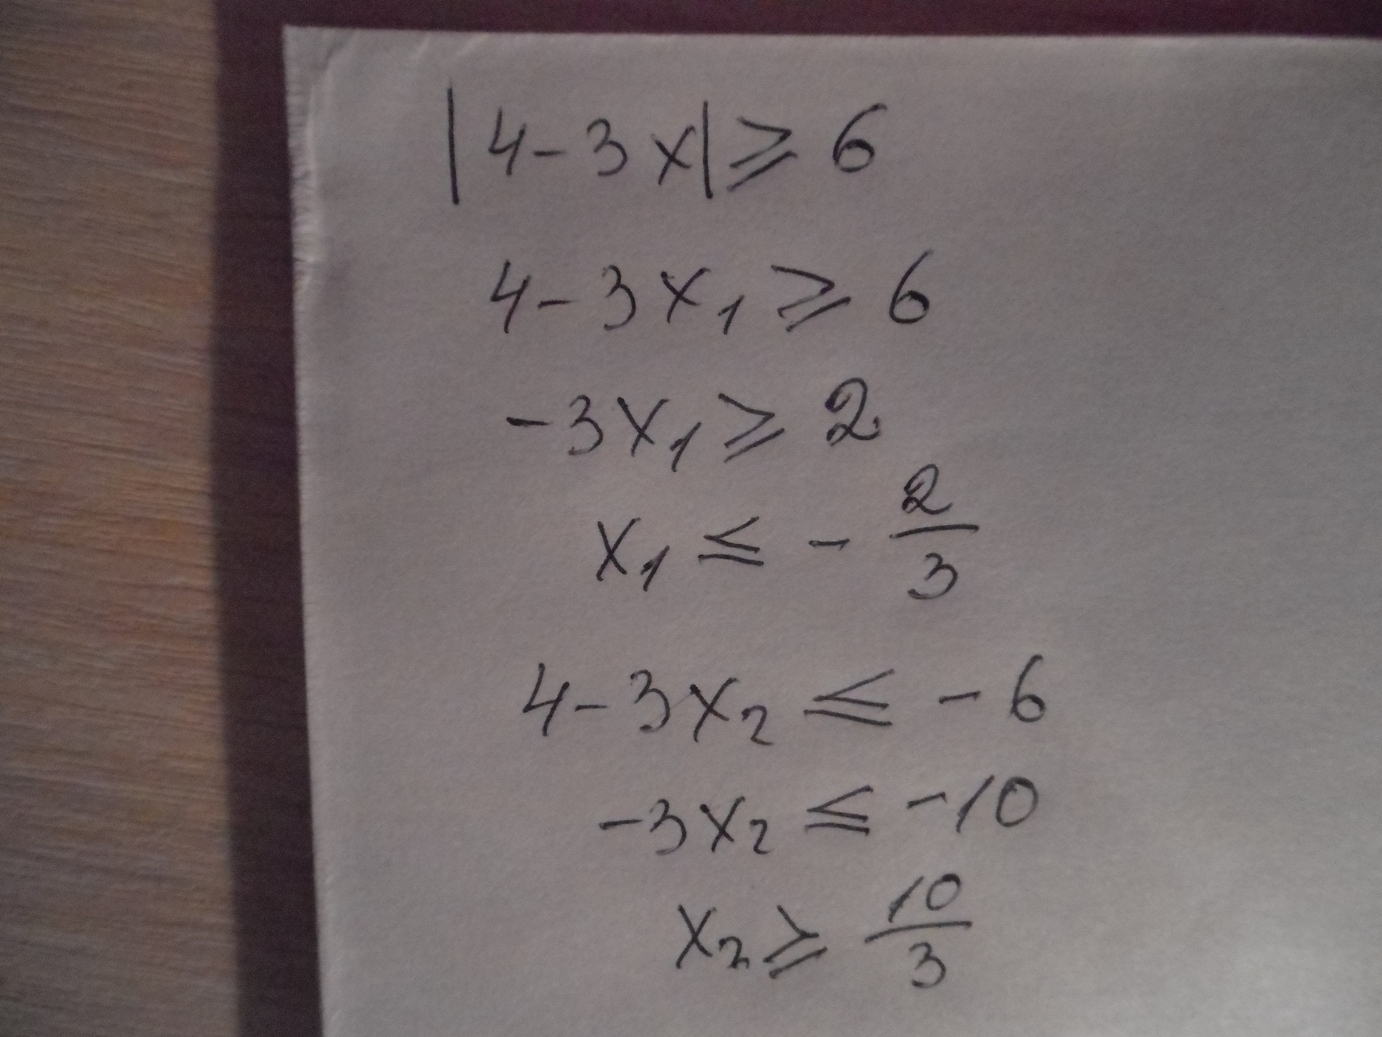 |4-3x|⩾6
4-3x₁⩾6
-3x₁⩾2
x₁⩽-2/3
4-3x₂⩽-6
-3x₂⩽-10
x₂⩾10/3